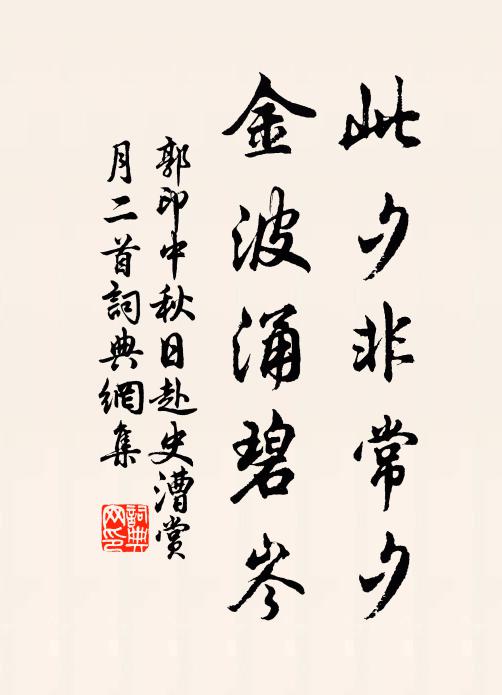 此夕非常夕
金波涌碧岑
郭印中秋日赴史漕赏
月二首詞典網集
詞典网印